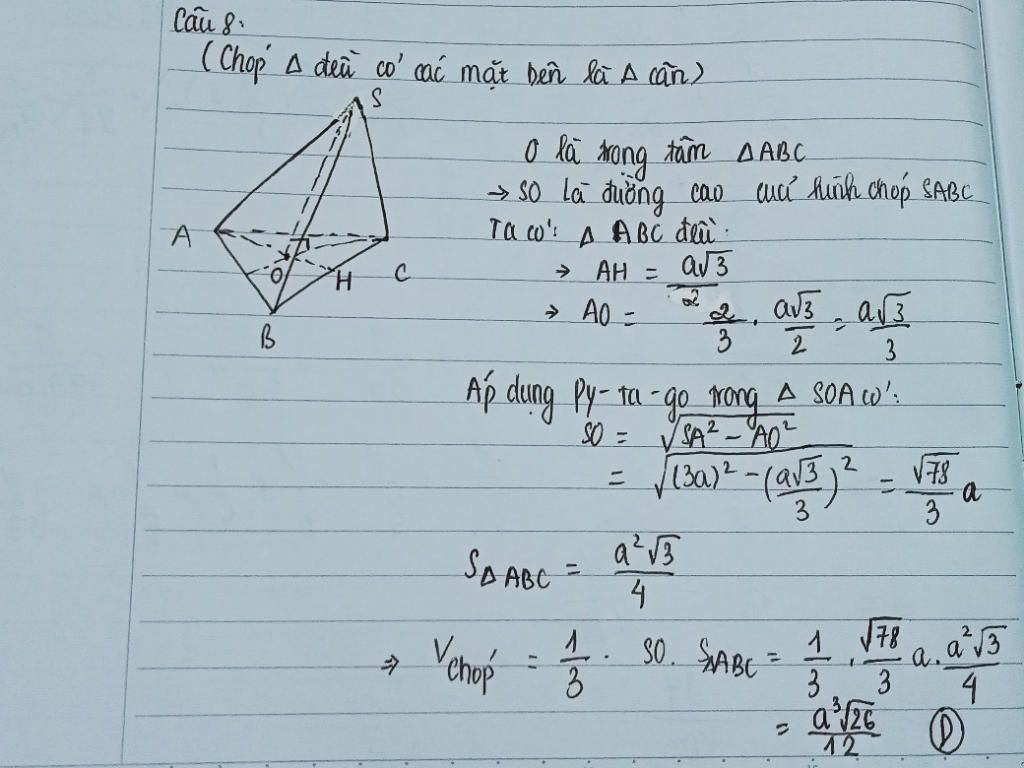 Câu 8:
(Chóp Δ đều có các mặt bên là Δ cân)
S
A
O
H
C
B
O là trọng tâm ΔABC
→ SO là đường cao cuả hình chóp SABC
Ta có: Δ ABC đều:
→ AH = a√3/2
→ AO = 2/3 . a√3/2 = a√3/3
Áp dụng Py-ta-go trong Δ SOA có:
SO = √(SA² - AO²)
= √((3a)² - (a√3/3)²) = √78/3 a
SΔABC = a²√3/4
⇒ Vchóp = 1/3 . SO. SΔABC = 1/3 . √78/3 a . a²√3/4
= a³√26/12 Ⓓ